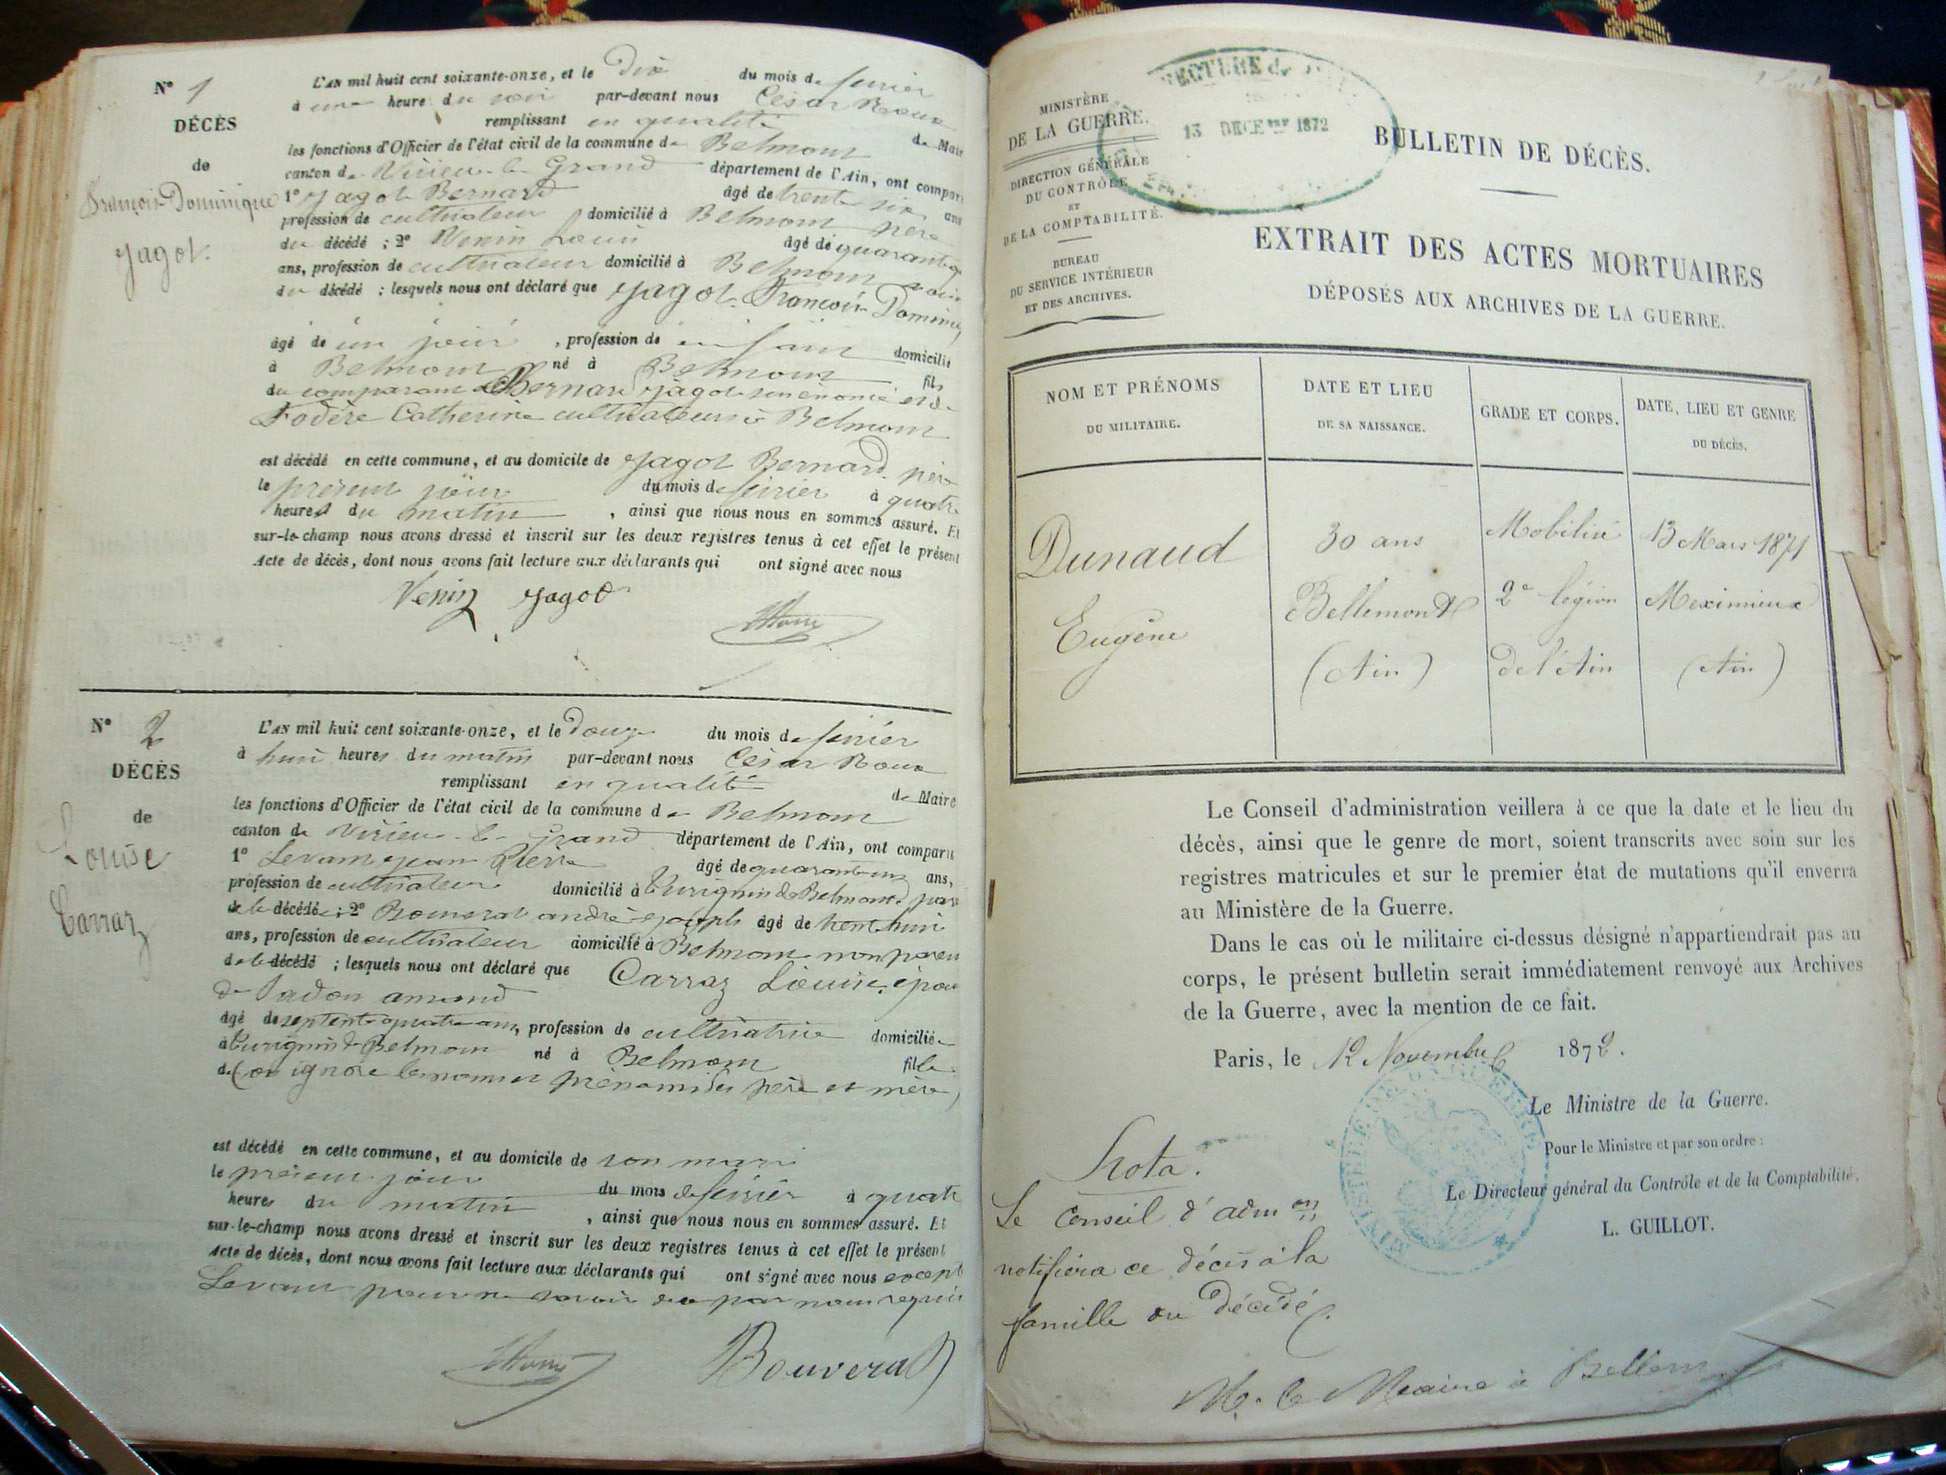 N° 1
DÉCÈS
de
François Dominique
Jagot.
L'AN mil huit cent soixante-onze, et le Dix du mois de février
à une heure du soir par-devant nous César Roux
remplissant en qualité de Maire
les fonctions d'Officier de l'état civil de la commune de Belmont
canton de Virieu-le-Grand département de l'Ain, ont comparu
1° Jagot Bernard âgé de trente six ans
profession de cultivateur domicilié à Belmont père
du décédé ; 2° Venin Louis âgé de quarante
ans, profession de cultivateur domicilié à Belmont voisin
du décédé ; lesquels nous ont déclaré que Jagot François Dominique
âgé de un jour , profession de enfant domicilié
à Belmont né à Belmont fils
du comparant Bernard Jagot et de
Fodère Catherine cultivateurs à Belmont
est décédé en cette commune, et au domicile de Jagot Bernard père
le présent jour du mois de février à quatre
heures du matin , ainsi que nous nous en sommes assuré. Et
sur-le-champ nous avons dressé et inscrit sur les deux registres tenus à cet effet le présent
Acte de décès, dont nous avons fait lecture aux déclarants qui ont signé avec nous
Venin Jagot
N° 2
DÉCÈS
de
Louise
Carraz
L'AN mil huit cent soixante-onze, et le Douze du mois de février
à huit heures du matin par-devant nous César Roux
remplissant en qualité de Maire
les fonctions d'Officier de l'état civil de la commune de Belmont
canton de Virieu-le-Grand département de l'Ain, ont comparu
1° Levant Jean Pierre âgé de quarante un ans,
profession de cultivateur domicilié à Vurignin de Belmont
de la décédée ; 2° Bouverat andré joseph âgé de trente huit
ans, profession de cultivateur domicilié à Belmont non parent
de la décédé ; lesquels nous ont déclaré que Carraz Louise, épouse
de amand
âgé de septente quatre ans, profession de cultivatrice domiciliée
à Vurignin de Belmont né à Belmont fille
de (on ignore les noms et prénoms des père et mère)
est décédé en cette commune, et au domicile de son mari
le présent jour du mois de février à quatre
heures du matin , ainsi que nous nous en sommes assuré. Et
sur-le-champ nous avons dressé et inscrit sur les deux registres tenus à cet effet le présent
Acte de décès, dont nous avons fait lecture aux déclarants qui ont signé avec nous except
Levant pour ne savoir de par nous requis
Bouverat
MINISTÈRE
DE LA GUERRE.
DIRECTION GÉNÉRALE
DU CONTRÔLE
ET
DE LA COMPTABILITÉ.
BUREAU
DU SERVICE INTÉRIEUR
ET DES ARCHIVES.
13 DECEMBRE 1872
BULLETIN DE DÉCÈS.
EXTRAIT DES ACTES MORTUAIRES
DÉPOSÉS AUX ARCHIVES DE LA GUERRE.
NOM ET PRÉNOMS
DU MILITAIRE.
DATE ET LIEU
DE SA NAISSANCE.
GRADE ET CORPS.
DATE, LIEU ET GENRE
DU DÉCÈS.
Dunaud
Eugène
30 ans
Bellemont
(Ain)
Mobilisé
2e légion
de l'Ain
13 Mars 1871
Meximieux
(Ain)
Le Conseil d'administration veillera à ce que la date et le lieu du
décès, ainsi que le genre de mort, soient transcrits avec soin sur les
registres matricules et sur le premier état de mutations qu'il enverra
au Ministère de la Guerre.
Dans le cas où le militaire ci-dessus désigné n'appartiendrait pas au
corps, le présent bulletin serait immédiatement renvoyé aux Archives
de la Guerre, avec la mention de ce fait.
Paris, le 12 Novembre 1872.
Le Ministre de la Guerre.
Pour le Ministre et par son ordre :
Le Directeur général du Contrôle et de la Comptabilité,
L. GUILLOT.
Nota.
Le Conseil d'admon
notifiera ce décès à la
famille du décédé.
M. le Maire à Bellemont